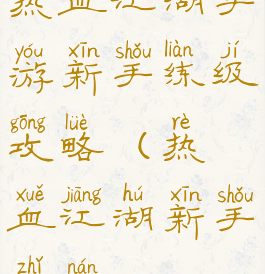 热血江湖手
yóu xīn shǒu liàn jí
游新手练级
gōng lüè rè
攻略（热
xuě jiāng hú xīn shǒu
血江湖新手
zhǐ nán